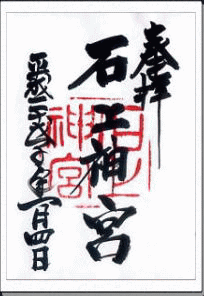 奉拝
石上神宮
石上
神宮
平成二十 年一月四日